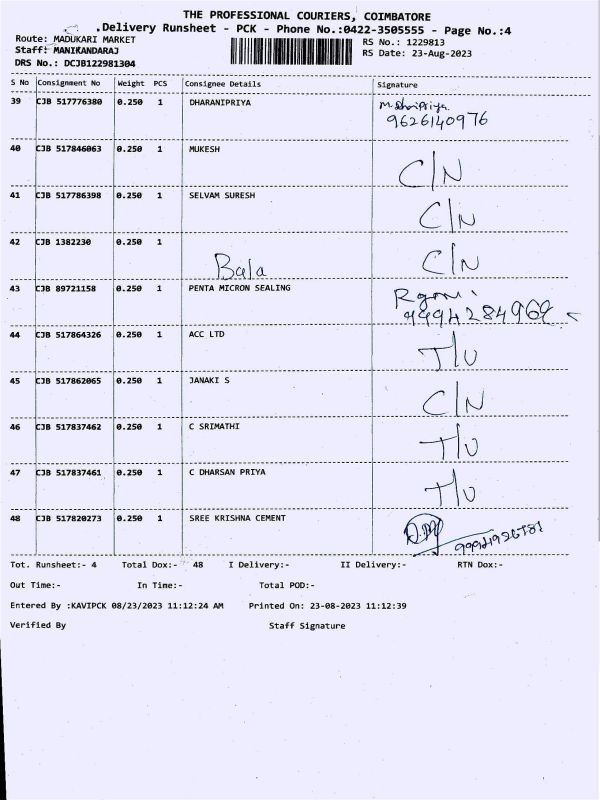 THE PROFESSIONAL COURIERS, COIMBATORE
Delivery Runsheet - PCK - Phone No.:0422-3505555 - Page No.:4
Route: MADUKARI MARKET
RS No.: 1229813
Staff: MANIKANDARAJ
RS Date: 23-Aug-2023
DRS No.: DCJB122981304
S No Consignment No Weight PCS Consignee Details Signature
39 CJB 517776380 0.250 1 DHARANIPRIYA
9626140976
40 CJB 517846063 0.250 1 MUKESH C/N
41 CJB 517786398 0.250 1 SELVAM SURESH C/N
42 CJB 1382230 0.250 1 Bala C/N
43 CJB 89721158 0.250 1 PENTA MICRON SEALING
44 CJB 517864326 0.250 1 ACC LTD T/U
45 CJB 517862065 0.250 1 JANAKI S C/N
46 CJB 517837462 0.250 1 C SRIMATHI T/U
47 CJB 517837461 0.250 1 C DHARSAN PRIYA T/U
48 CJB 517820273 0.250 1 SREE KRISHNA CEMENT
Tot. Runsheet:- 4 Total Dox:- 48 I Delivery:- II Delivery:- RTN Dox:-
Out Time:- In Time:- Total POD:-
Entered By :KAVIPCK 08/23/2023 11:12:24 AM Printed On: 23-08-2023 11:12:39
Verified By Staff Signature